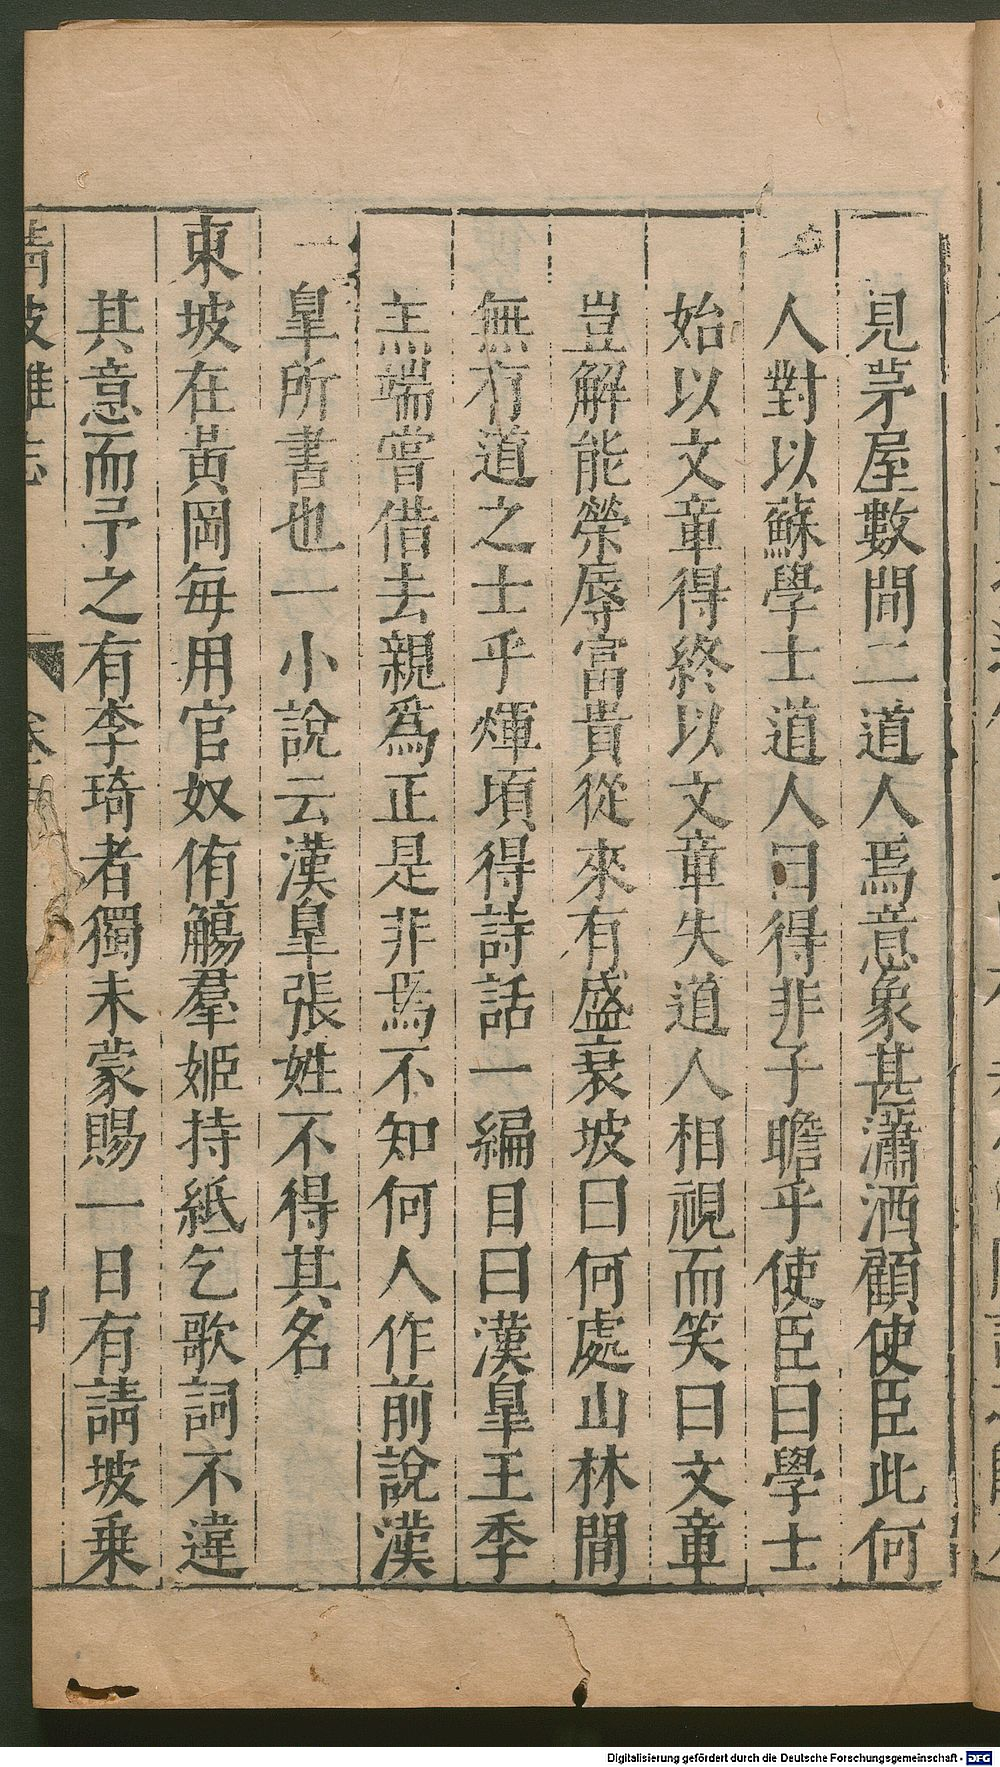 見茅屋數間二道人焉意象甚瀟洒顧使臣此何
人對以蘇學士道人曰得非子瞻乎使臣曰學士
始以文章得終以文章失道人相視而笑曰文章
豈解能榮辱富貴從來有盛衰坡曰何處山林間
無有道之士乎煇頃得詩話一編目曰漢臯王季
羔端嘗借去親爲正是非焉不知何人作前說漢
臯所書也一小說云漢臯張姓不得其名
東坡在黃岡每用官奴侑觴羣姬持紙乞歌詞不違
其意而予之有李琦者獨未蒙賜一日有請坡乗
清波雜志
卷
四
Digitalisierung gefördert durch die Deutsche Forschungsgemeinschaft - DFG